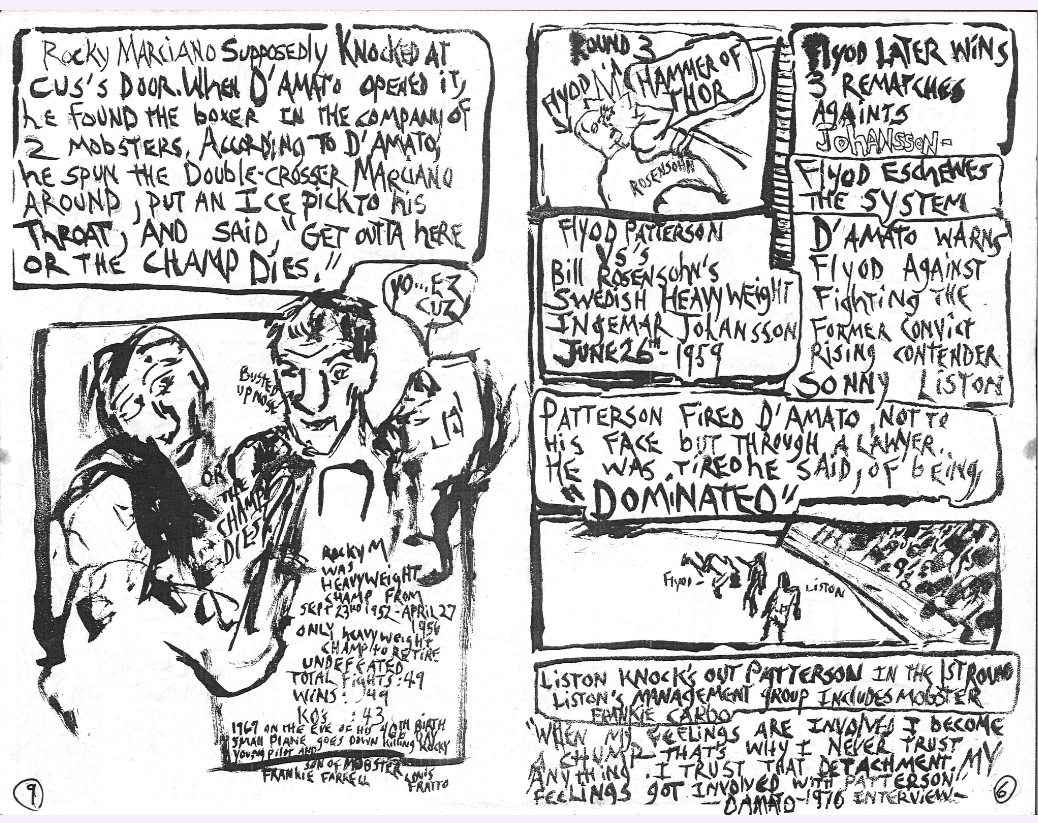 Rocky Marciano Supposedly Knocked at
Cus's Door. When D'Amato opened it,
he found the boxer in the company of
2 mobsters. According to D'Amato,
he spun the Double-crosser Marciano
around, put an ice pick to his
throat, and said, "Get outta here
or the champ dies."
Yo... Ez
Cuz
Busted
up nose
Or
the
champ
dies
Rocky M
was
heavyweight
champ from
Sept 23rd 1952-April 27
1956
only heavyweight
champ to retire
undefeated
Total fights: 49
Wins: 49
KO's: 43
1969 on the eve of his 46th birth
day
small plane goes down killing Rocky
young pilot and
son of mobster
Frankie Farrell
Louis
Fratto
9
Round 3
Flyod
Hammer of
Thor
Rosensohn
Flyod Patterson
Vs's
Bill Rosensohn's
Swedish heavyweight
Ingemar Johansson
June 26th - 1959
Flyod later wins
3 rematches
againts
Johansson-
Flyod eschewes
the system
D'Amato warns
Flyod against
fighting the
former convict
rising contender
Sonny Liston
Patterson fired D'Amato not to
his face but through a lawyer.
He was tired he said, of being,
"Dominated"
Flyod-
Liston
Liston knock's out Patterson in the 1st round
Liston's management group includes mobster
Frankie Carbo
"When my feelings are involved I become
a chump - that's why I never trust
anything. I trust that detachment. My
feelings got involved with Patterson
- Damato - 1976 interview -
6